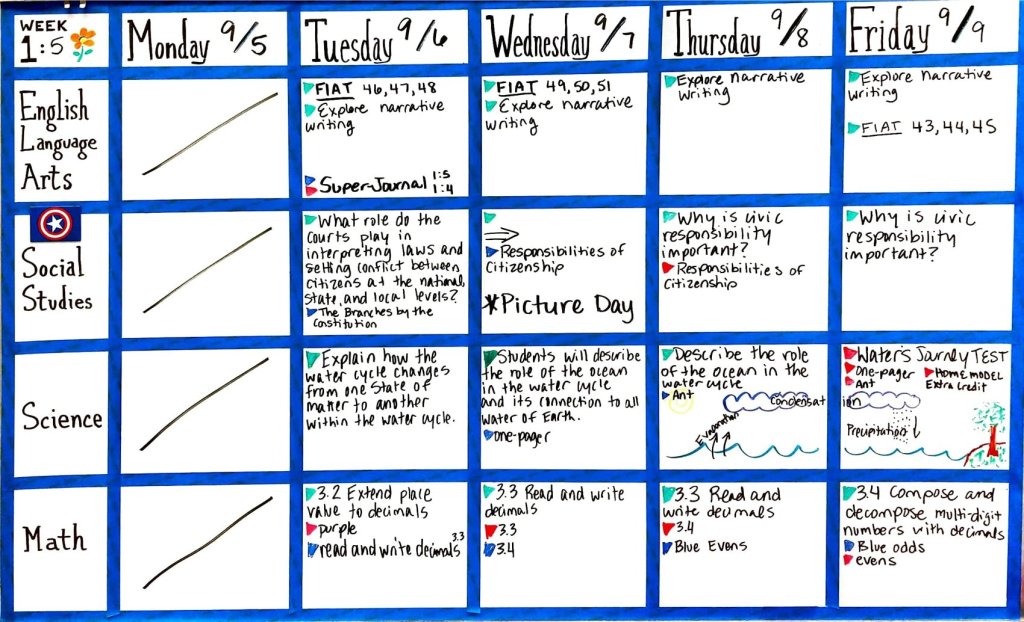 WEEK
1:5
Monday 9/5
Tuesday 9/6
Wednesday 9/7
Thursday 9/8
Friday 9/9
English
Language
Arts
FIAT 46,47,48
Explore narrative
writing
Super-Journal 1:5
1:4
FIAT 49,50,51
Explore narrative
writing
Explore Narrative
Writing
Explore narrative
writing
FIAT 43,44,45
Social
Studies
What role do the
courts play in
interpreting laws and
setting conflict between
citizens at the national,
state, and local levels?
The Branches by the
Constitution
Responsibilities of
Citizenship
*Picture Day
Why is civic
responsibility
important?
Responsibilities of
Citizenship
Why is civic
responsibility
important?
Science
Explain how the
water cycle changes
from one state of
matter to another
within the water cycle.
Students will describe
the role of the ocean
in the water cycle
and its connection to all
water of Earth.
one-pager
Describe the role
of the ocean in the
water cycle
Ant
Condensation
Evaporation
Water's Journey TEST
One-pager
HOME MODEL
Ant
Extra Credit
Precipitation
Math
3.2 Extend place
value to decimals
purple
read and write decimals 3.3
3.3 Read and write
decimals
3.3
3.4
3.3 Read and
write decimals
3.4
Blue Evens
3.4 Compose and
decompose multi-digit
numbers with decimals
Blue odds
evens